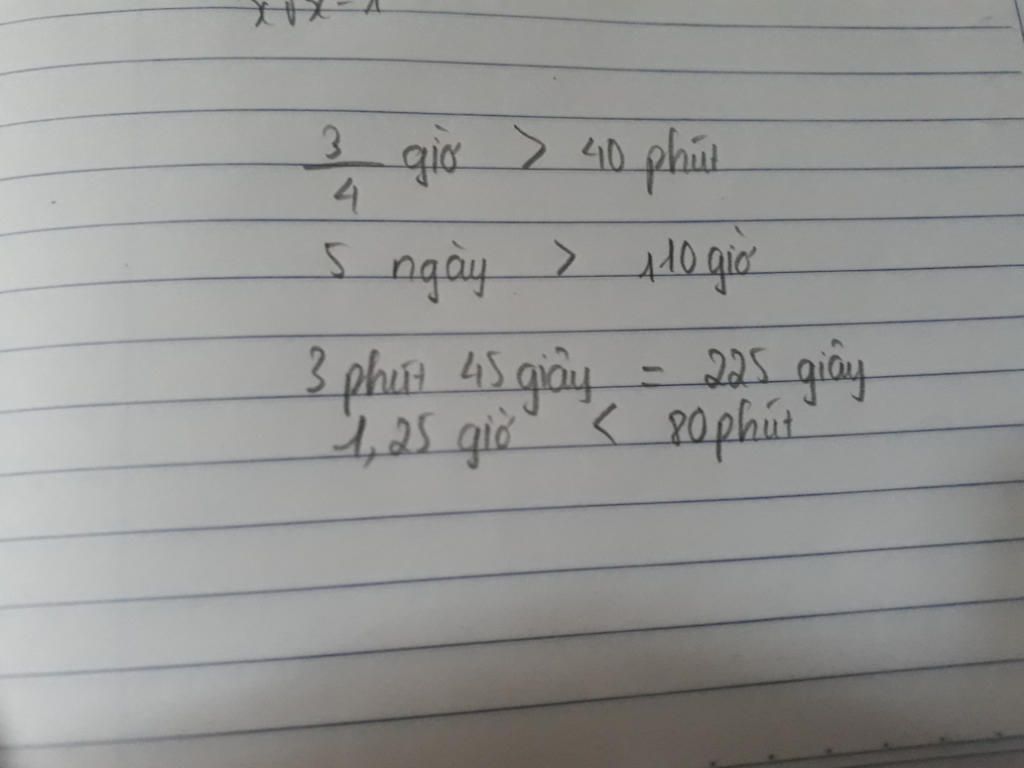 3/4 giờ > 40 phút
5 ngày > 110 giờ
3 phút 45 giây = 225 giây
1,25 giờ < 80 phút